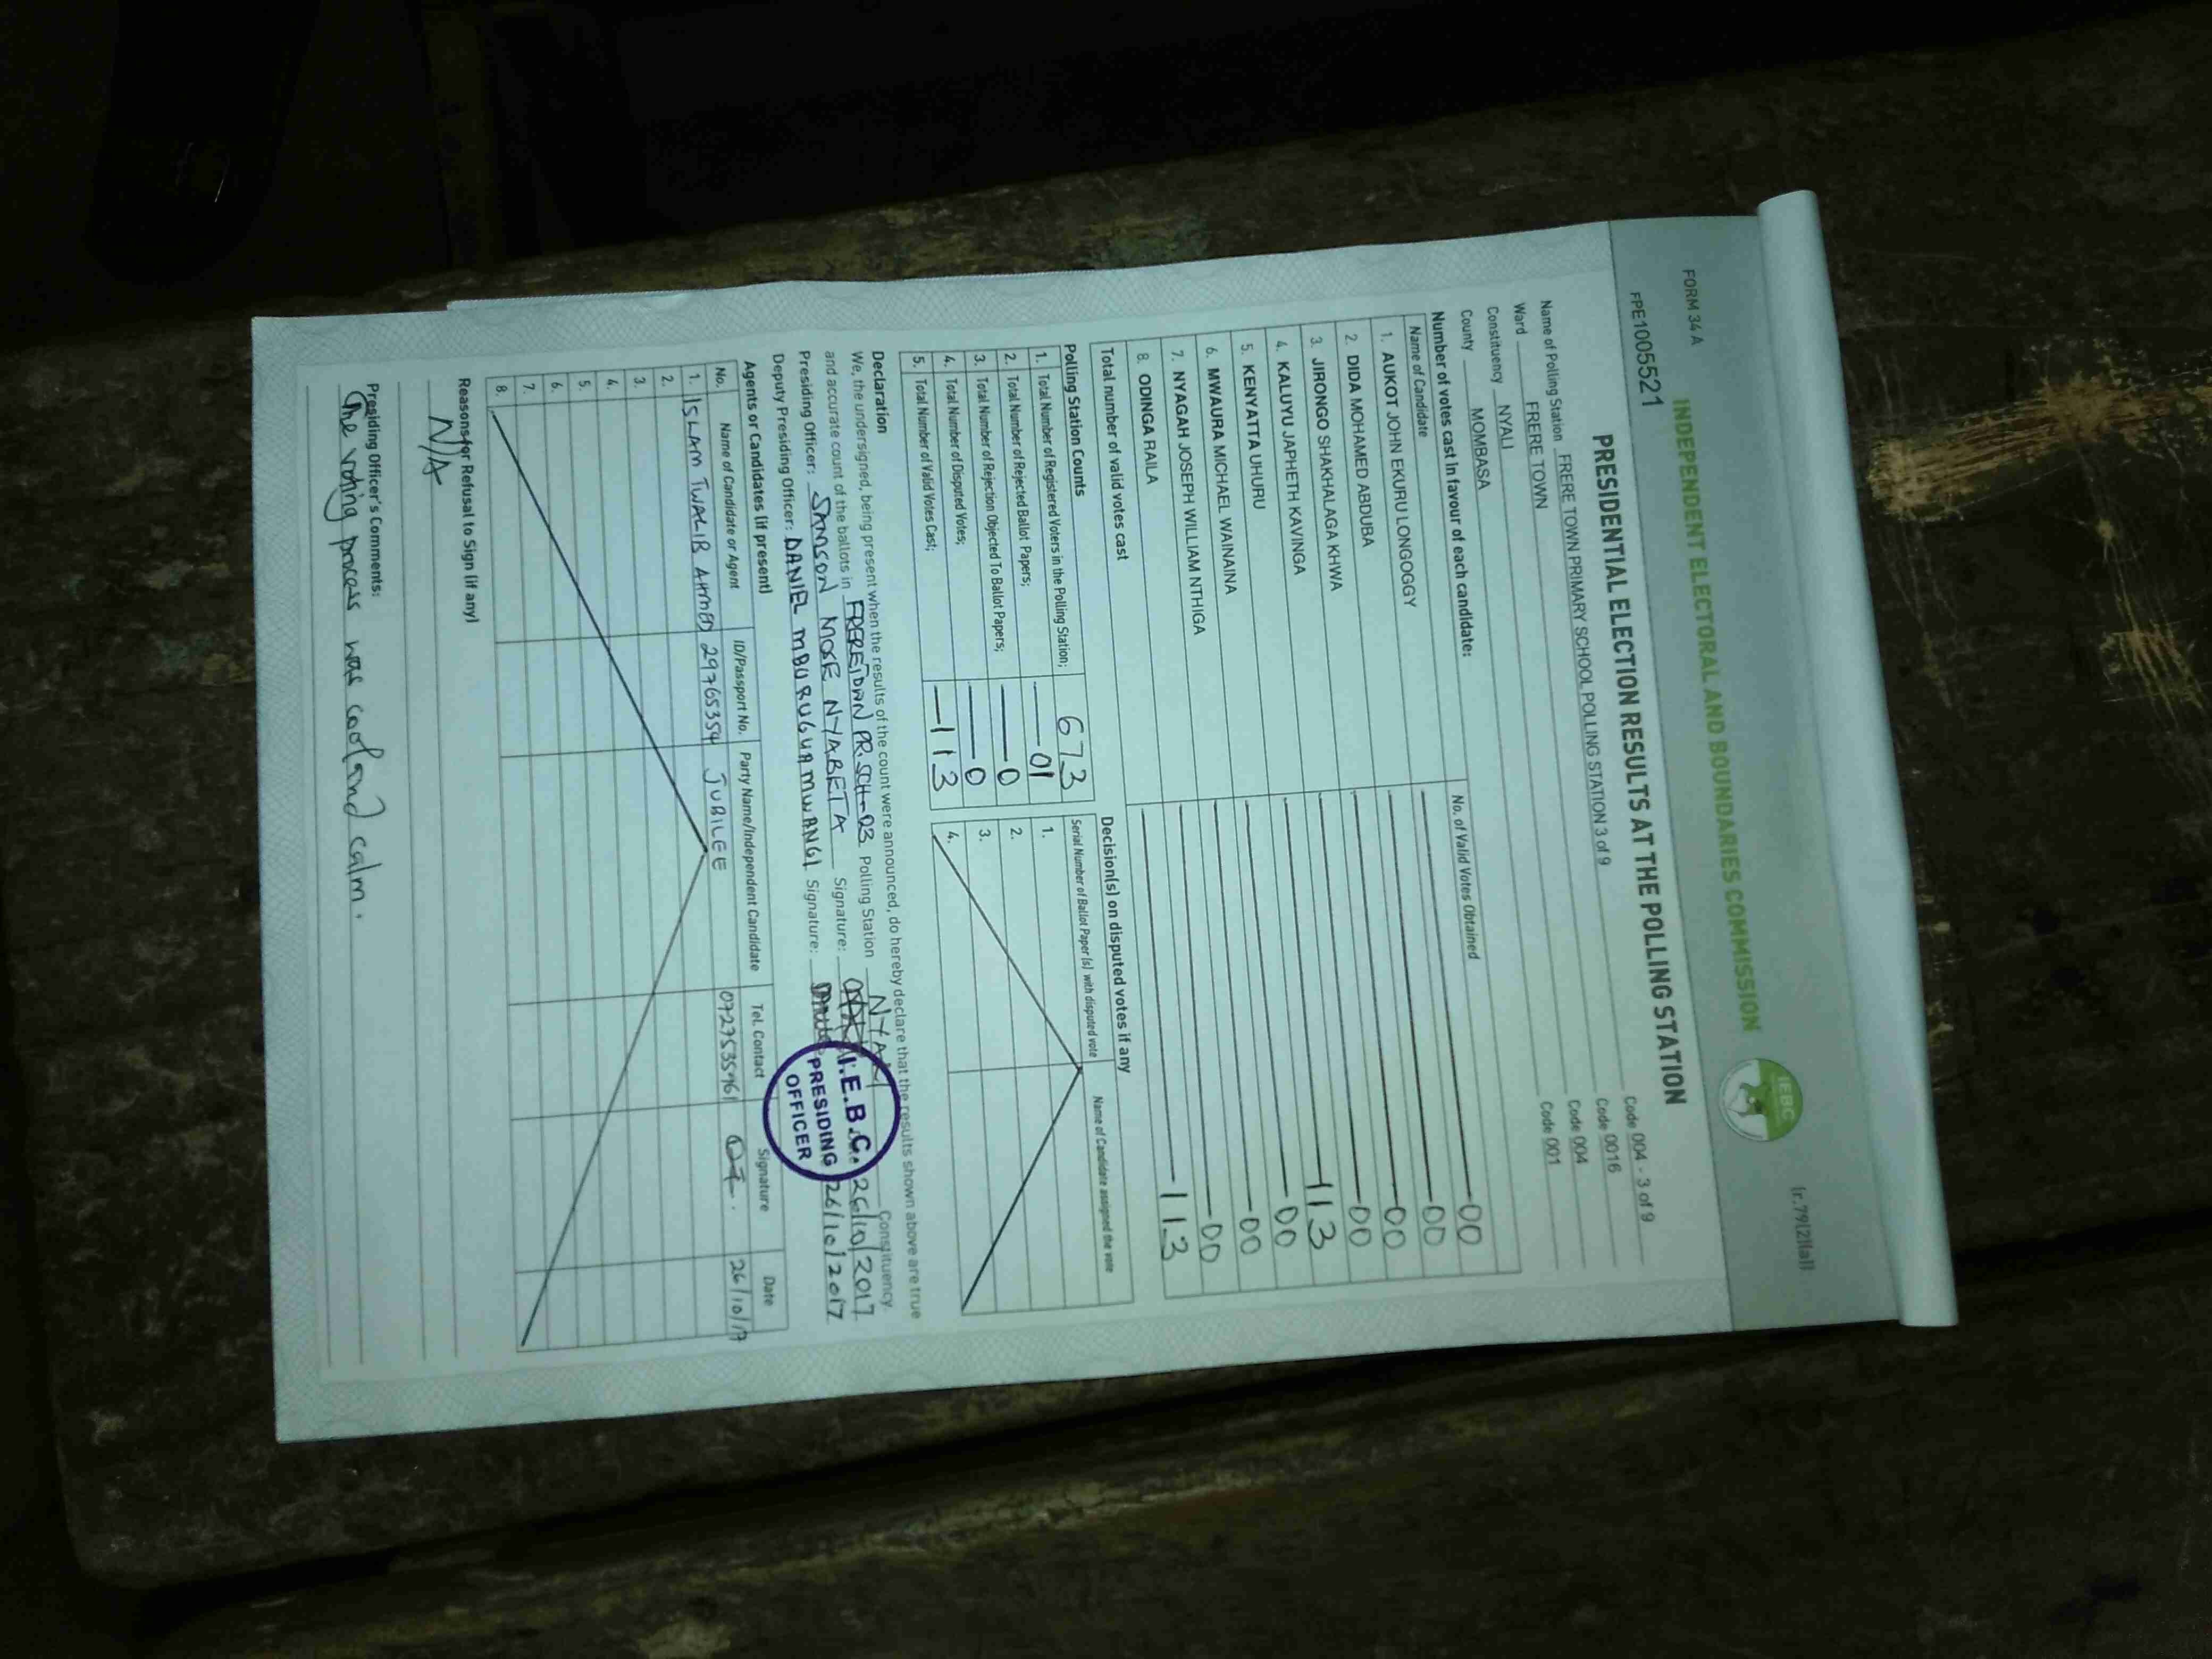 FORM 34A
(r.79(2)(a))
INDEPENDENT ELECTORAL AND BOUNDARIES COMMISSION
IEBC
FPE1005521
PRESIDENTIAL ELECTION RESULTS AT THE POLLING STATION
Name of Polling Station FRERE TOWN PRIMARY SCHOOL POLLING STATION 3 of 9 Code 004 - 3 of 9
Ward FRERE TOWN Code 0016
Constituency NYALI Code 004
County MOMBASA Code 001
Number of votes cast in favour of each candidate:
Name of Candidate No. of Valid Votes Obtained
1. AUKOT JOHN EKURU LONGOGGY 00
2. DIDA MOHAMED ABDUBA 00
3. JIRONGO SHAKHALAGA KHWA 00
4. KALUYU JAPHETH KAVINGA 00
5. KENYATTA UHURU 113
6. MWAURA MICHAEL WAINAINA 00
7. NYAGAH JOSEPH WILLIAM NTHIGA 00
8. ODINGA RAILA 00
Total number of valid votes cast 113
Polling Station Counts
1. Total Number of Registered Voters in the Polling Station; 673
2. Total Number of Rejected Ballot Papers; 01
3. Total Number of Rejection Objected To Ballot Papers; 0
4. Total Number of Disputed Votes; 0
5. Total Number of Valid Votes Cast; 113
Decision(s) on disputed votes if any
Serial Number of Ballot Paper (s) with disputed vote Name of Candidate assigned the vote
1.
2.
3.
4.
Declaration
We, the undersigned, being present when the results of the count were announced, do hereby declare that the results shown above are true
and accurate count of the ballots in FRERETOWN PR SCH-03 Polling Station NYALI Constituency.
Presiding Officer: SAMSON MOSE NYABETA Signature: 26/10/2017
Deputy Presiding Officer: DANIEL MBURUGU MWANGI Signature: 26/10/2017
I.E.B.C.
PRESIDING
OFFICER
Agents or Candidates (if present)
No. Name of Candidate or Agent ID/Passport No. Party Name/Independent Candidate Tel. Contact Signature Date
1. ISLAM TWALIB AHMED 29765354 JUBILEE 0727535961 26/10/17
2.
3.
4.
5.
6.
7.
8.
Reasons for Refusal to Sign (if any)
N/A
Presiding Officer's Comments:
The voting process was cool and calm.